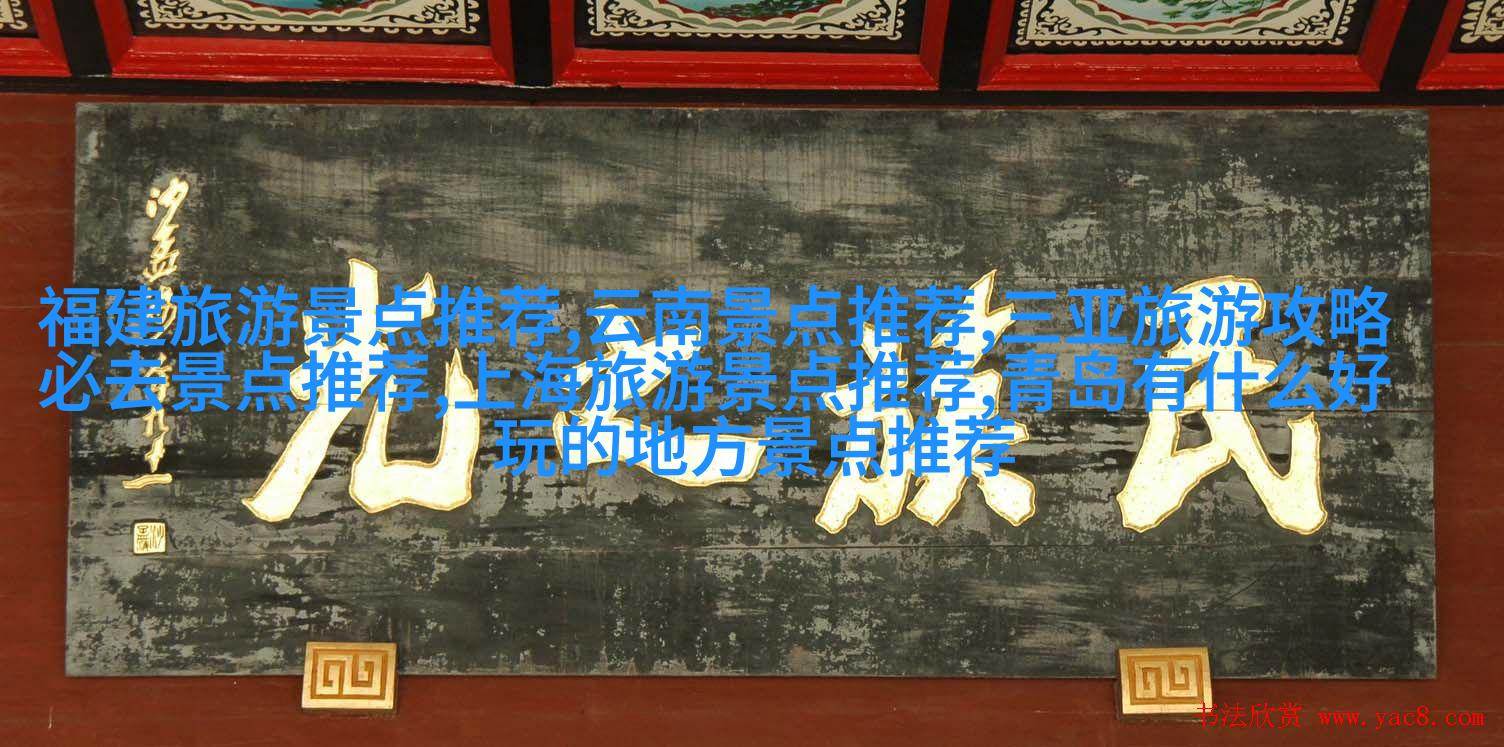 福建旅游景点推荐,云南景点推荐,三亚旅游攻略
必去景点推荐,上海旅游景点推荐,青岛有什么好
玩的地方景点推荐
民族之光
书法欣赏 www.yac8.com